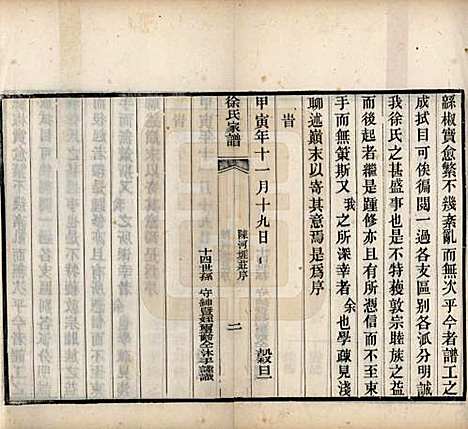 繇椒實愈繁不幾紊亂而無次乎今者譜工之
成拭目可俟徧閱一過各支區别各派分明誠
我徐氏之甚盛事也是不特蓰敦宗睦族之益
而後起者繼是踵修亦且有所憑信而不至束
手而無策斯又我之所深幸者余也學疎見淺
聊述巔末以寄其意焉是爲序
旹
甲寅年十一月十九日
陳河堐莊序
十四世孫
守紳
沐手謹識
穀旦
徐氏家譜
二